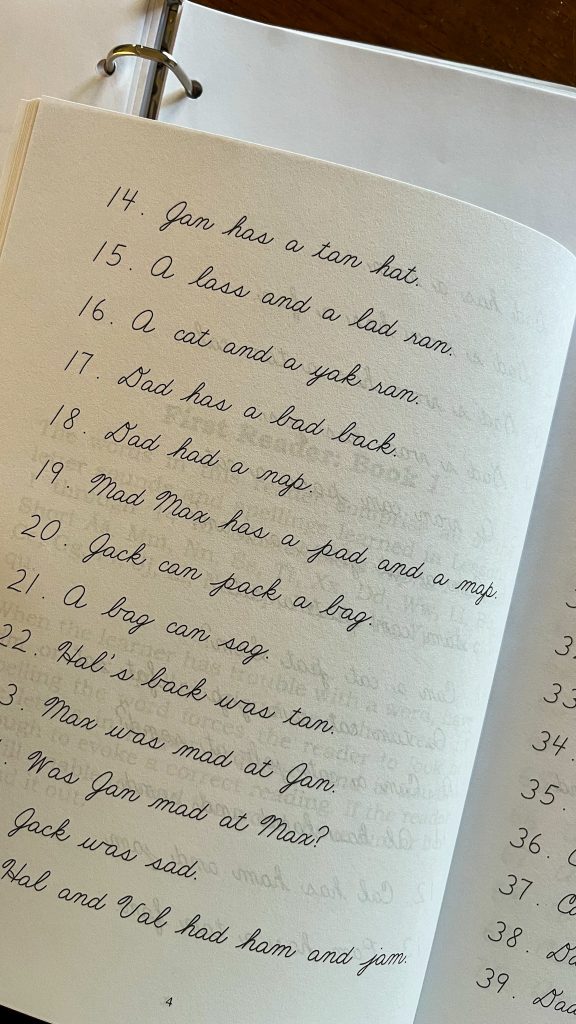 14. Jan has a tan hat.
15. A lass and a lad ran.
16. A cat and a yak ran.
17. Dad has a bad back.
18. Dad had a nap.
19. Mad Max has a pad and a map.
20. Jack can pack a bag.
21. A bag can sag.
22. Hal's back was tan.
3. Max was mad at Jan.
. Was Jan mad at Max?
Jack was sad.
Hal and Val had ham and jam.
4
33
34.
35.
36.
37.
38.
39. Dad